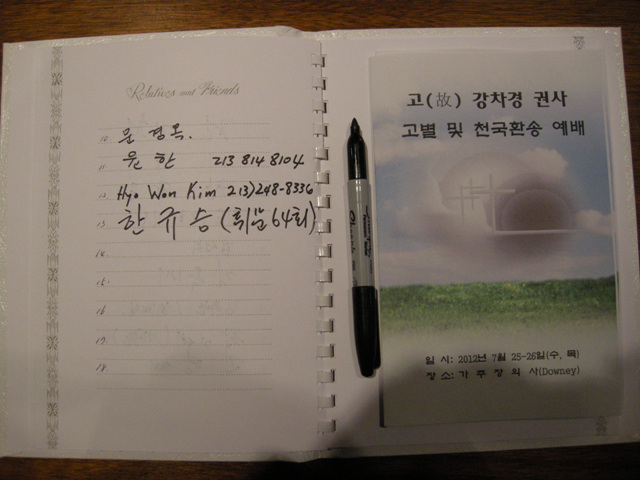 Relatives and Friends
10. 문 경 옥.
11. 원 한 213 814 8104
12. Hyo Won Kim 213)248-8336
13. 한 규 승 (휘문64회)
14.
15.
16.
17.
18.
고(故) 강차경 권사
고별 및 천국환송 예배
일 시: 2012년 7월 25-26일(수, 목)
장 소: 가 주 장 의 사(Downey)